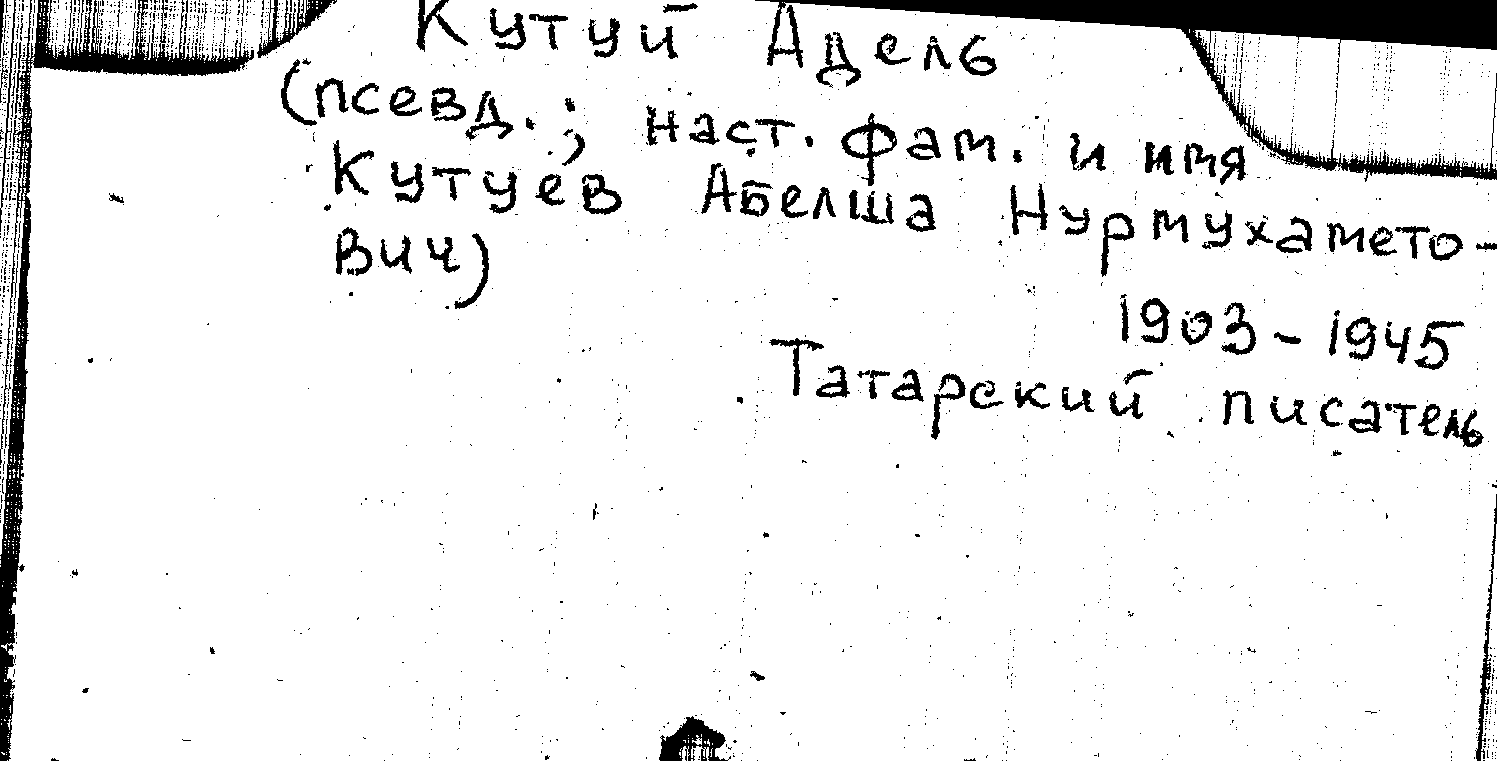 Кутуй Адель
(псевд.; наст. фам. и имя
Кутуев Абелша Нурмухамето-
вич)
1903-1945
Татарский писатель